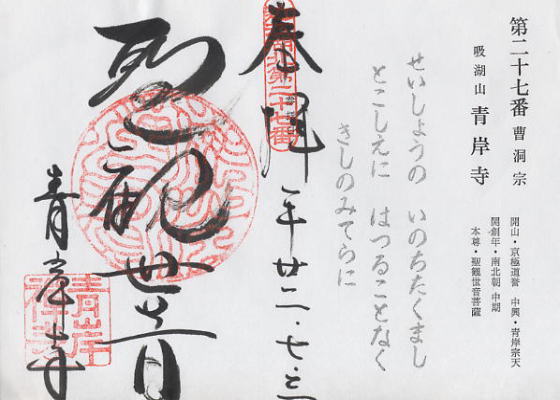 第二十七番 曹洞宗
吸湖山 青岸寺
開山・京極道誉 中興・青岸宗天
開創年・南北朝中期
本尊・聖観世音菩薩
せいしょうの いのちたくまし
とこしえに はつることなく
きしのみてらに
奉拝 年廿二・七・三
聖観世音
青岸寺